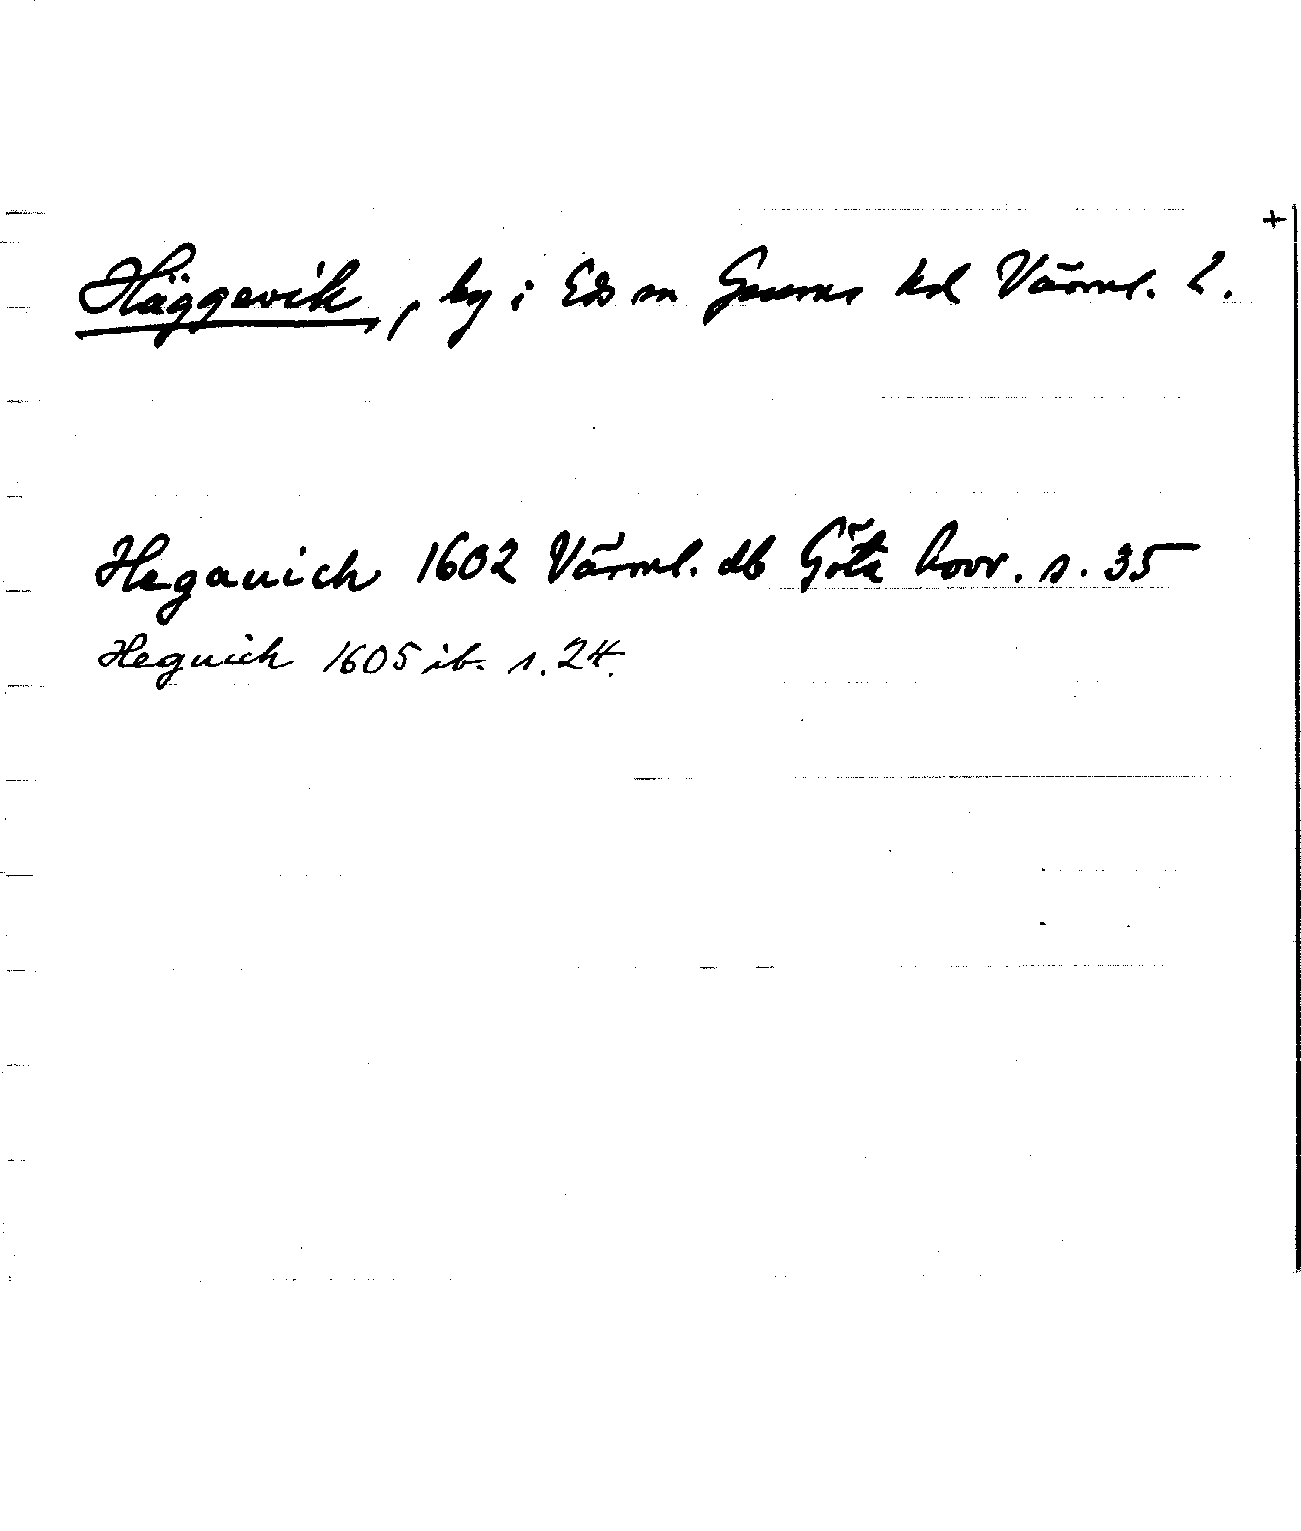 +
Häggevik, by i Eds sn Grums hd Värml. l.
Hegauich 1602 Värml. db Göta hovr. s. 35
Heguich 1605 ib. s. 24.